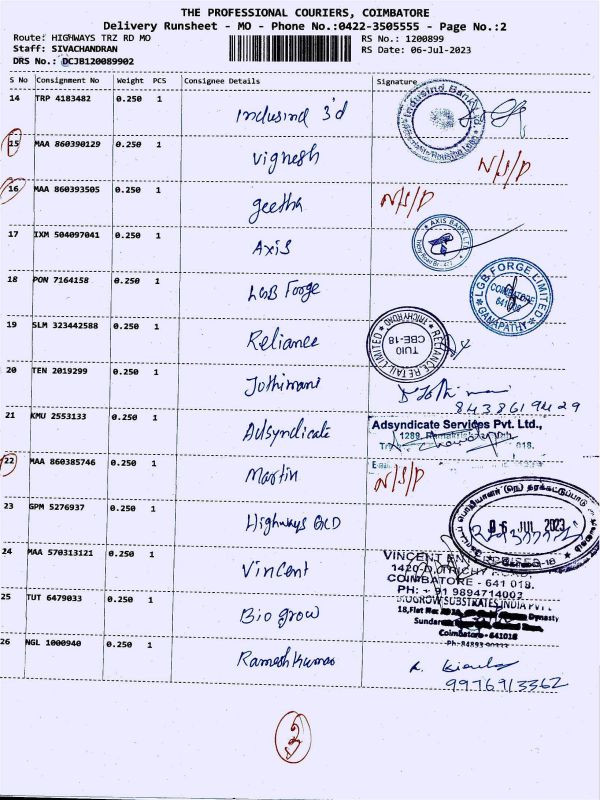 THE PROFESSIONAL COURIERS, COIMBATORE
Delivery Runsheet - MO - Phone No.:0422-3505555 - Page No.:2
Route: HIGHWAYS TRZ RD MO
RS No.: 1200899
Staff: SIVACHANDRAN
RS Date: 06-Jul-2023
DRS No.: DCJB120089902
S No Consignment No Weight PCS Consignee Details Signature
14 TRP 4183482 0.250 1 Indusind 3'd
Indusind Bank Ltd
15 MAA 860390129 0.250 1 Vignesh N/S/P
16 MAA 860393505 0.250 1 geetha N/S/P
17 IXM 504097041 0.250 1 Axis
AXIS BANK LTD
18 PON 7164158 0.250 1 LGB Forge
LGB FORGE LIMITED
COIMBATORE
GANAPATHY
19 SLM 323442588 0.250 1 Reliance
RELIANCE RETAIL LIMITED
TUIO
CBE-18
TRICHYROAD
20 TEN 2019299 0.250 1 Jothimani
8438619429
21 KMU 2553133 0.250 1 Adsyndicate
Adsyndicate Services Pvt. Ltd.,
1289,
018.
22 MAA 860385746 0.250 1 Martin N/S/P
23 GPM 5276937 0.250 1 Highways QCD
06 JUL 2023
24 MAA 570313121 0.250 1 Vincent
VINCENT
COIMBATORE - 641 018.
PH: + 91 9894714003
25 TUT 6479033 0.250 1 Bio grow
BIOGROW SUBSTRATES INDIA PVT L
18, Flat No: Dynasty
Coimbatore - 641018
26 NGL 1000940 0.250 1 Ramesh Kumar
9976913362
3